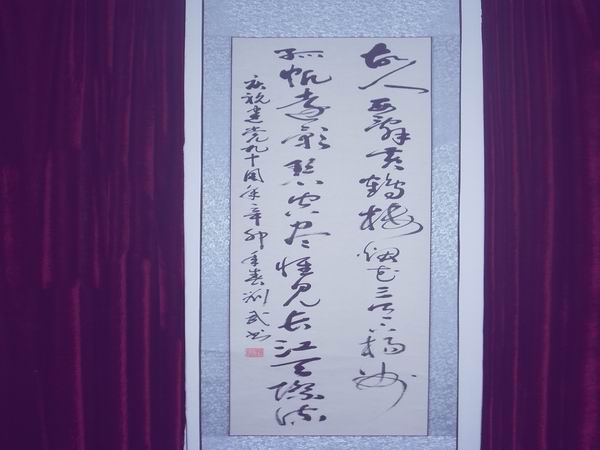 故人西辞黄鹤楼烟花三月下扬州
孤帆远影碧空尽惟见长江天际流
庆祝建党九十周年辛卯年春刘武书